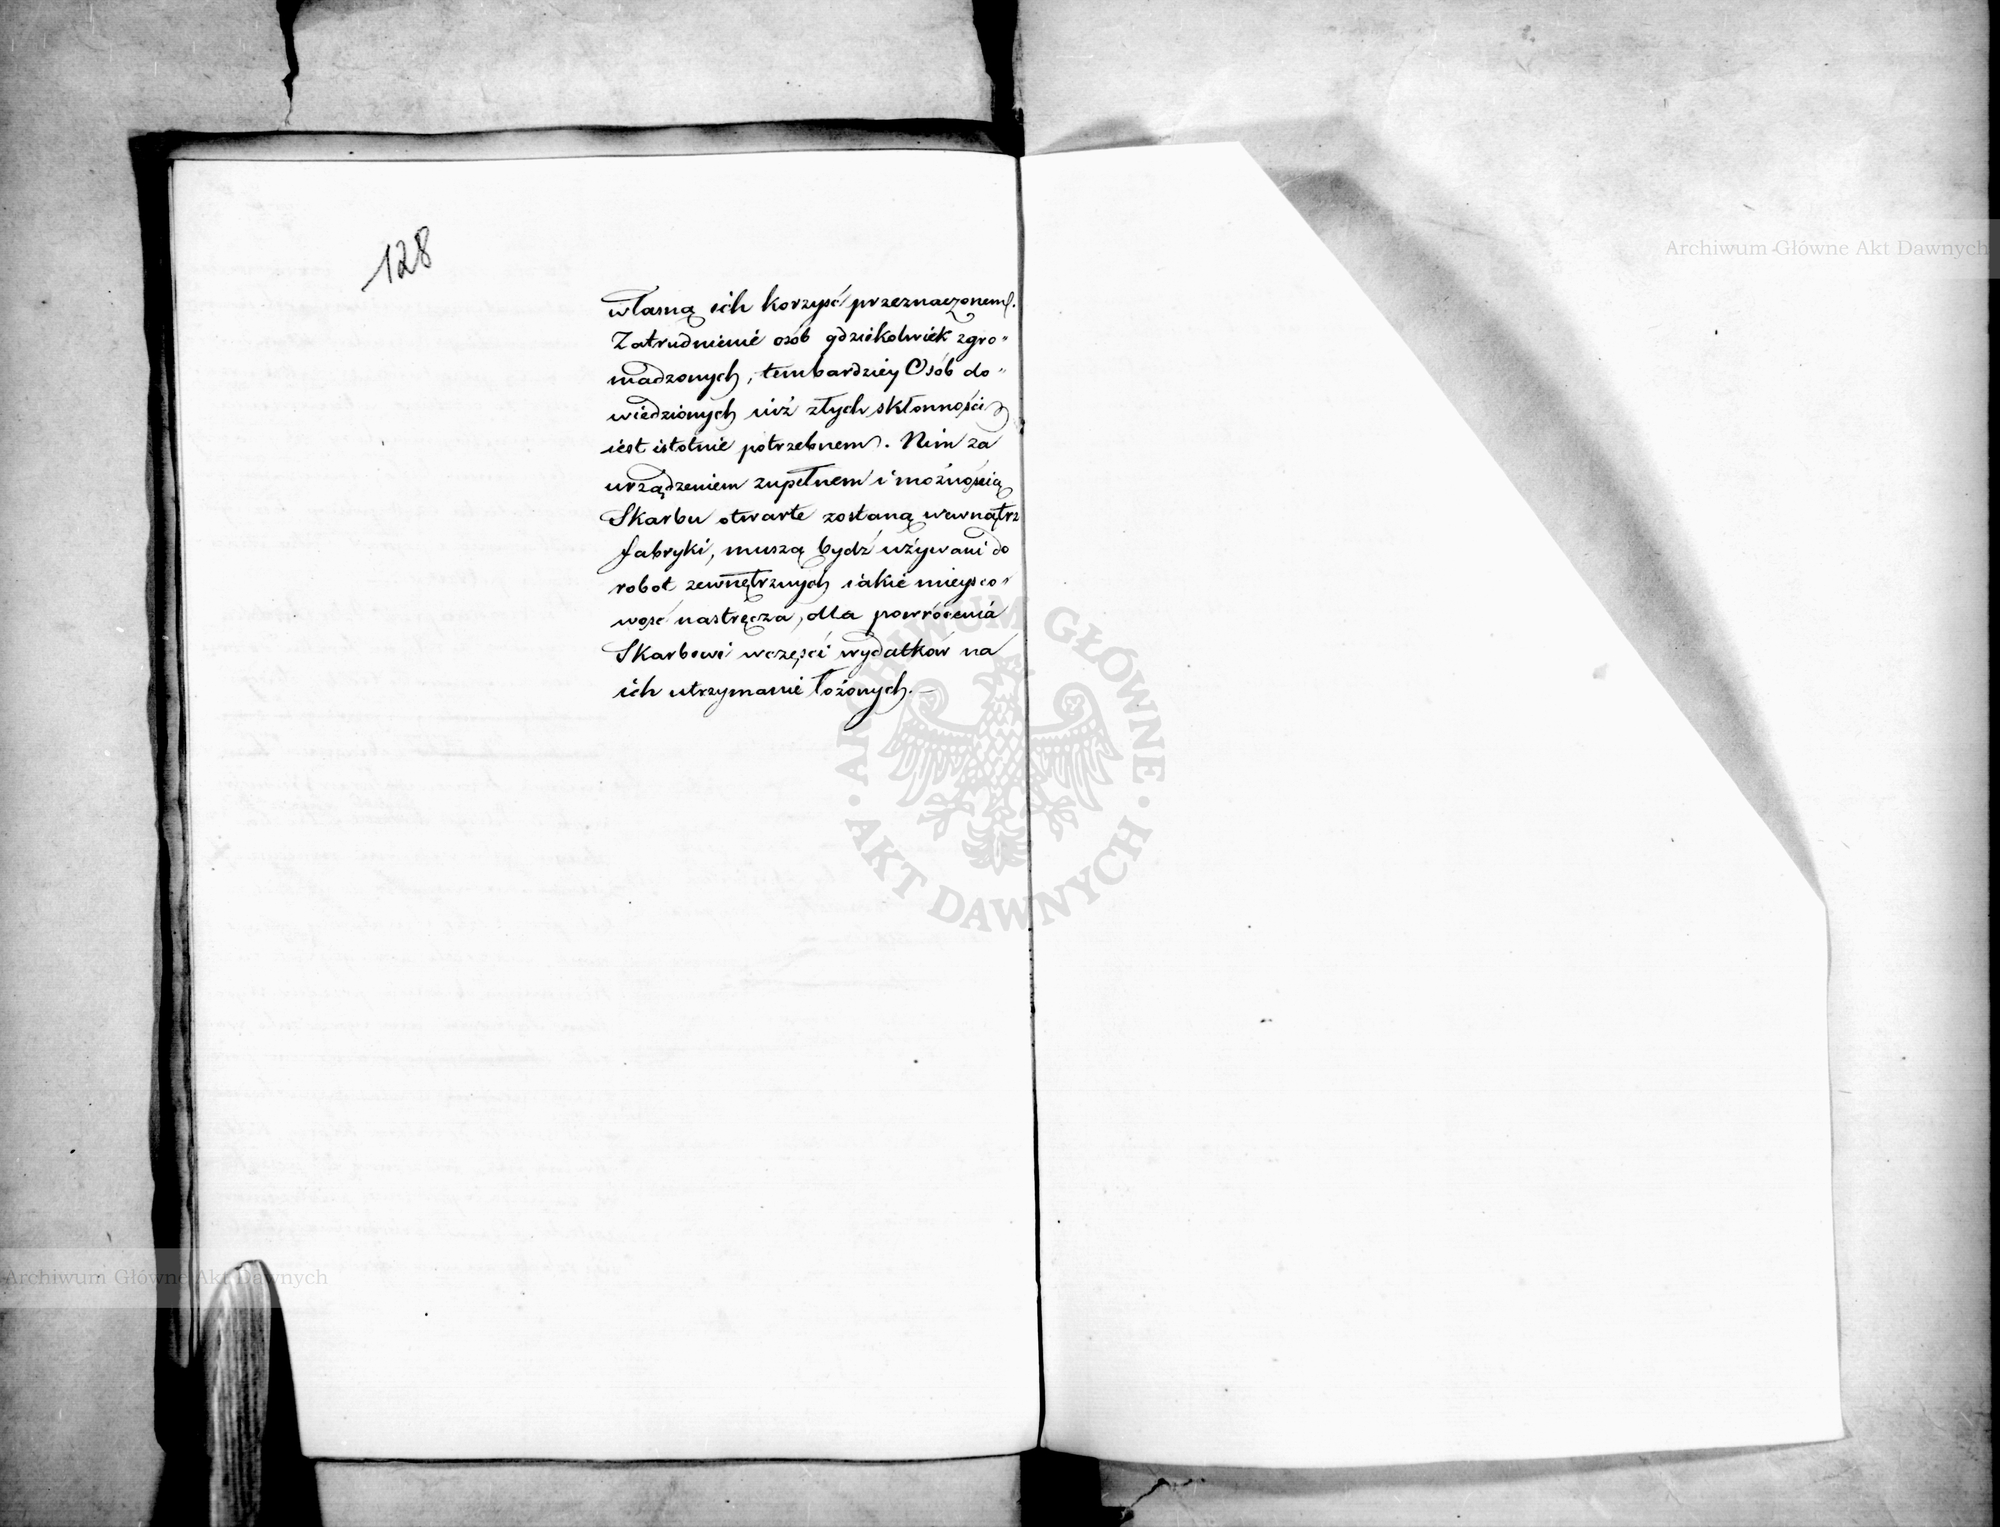 128
własną ich korzyść przeznaczonem.
Zatrudnienie osób gdziekolwiek zgro„
madzonych, tembardziey Osób do„
wiedzionych iuż złych skłonności
iest istotnie potrzebnem. Nim za
urządzeniem zupełnem i możnością
Skarbu otwarte zostaną wewnątrz
fabryki, muszą bydź używani do
robot zewnętrznych iakie mieysco„
wość nastręcza, dla powrócenia
Skarbowi wczęści wydatków na
ich utrzymanie łożonych.—
Archiwum Główne Akt Dawnych
ARCHIWUM GŁÓWNE
AKT DAWNYCH
Archiwum Główne Akt Dawnych